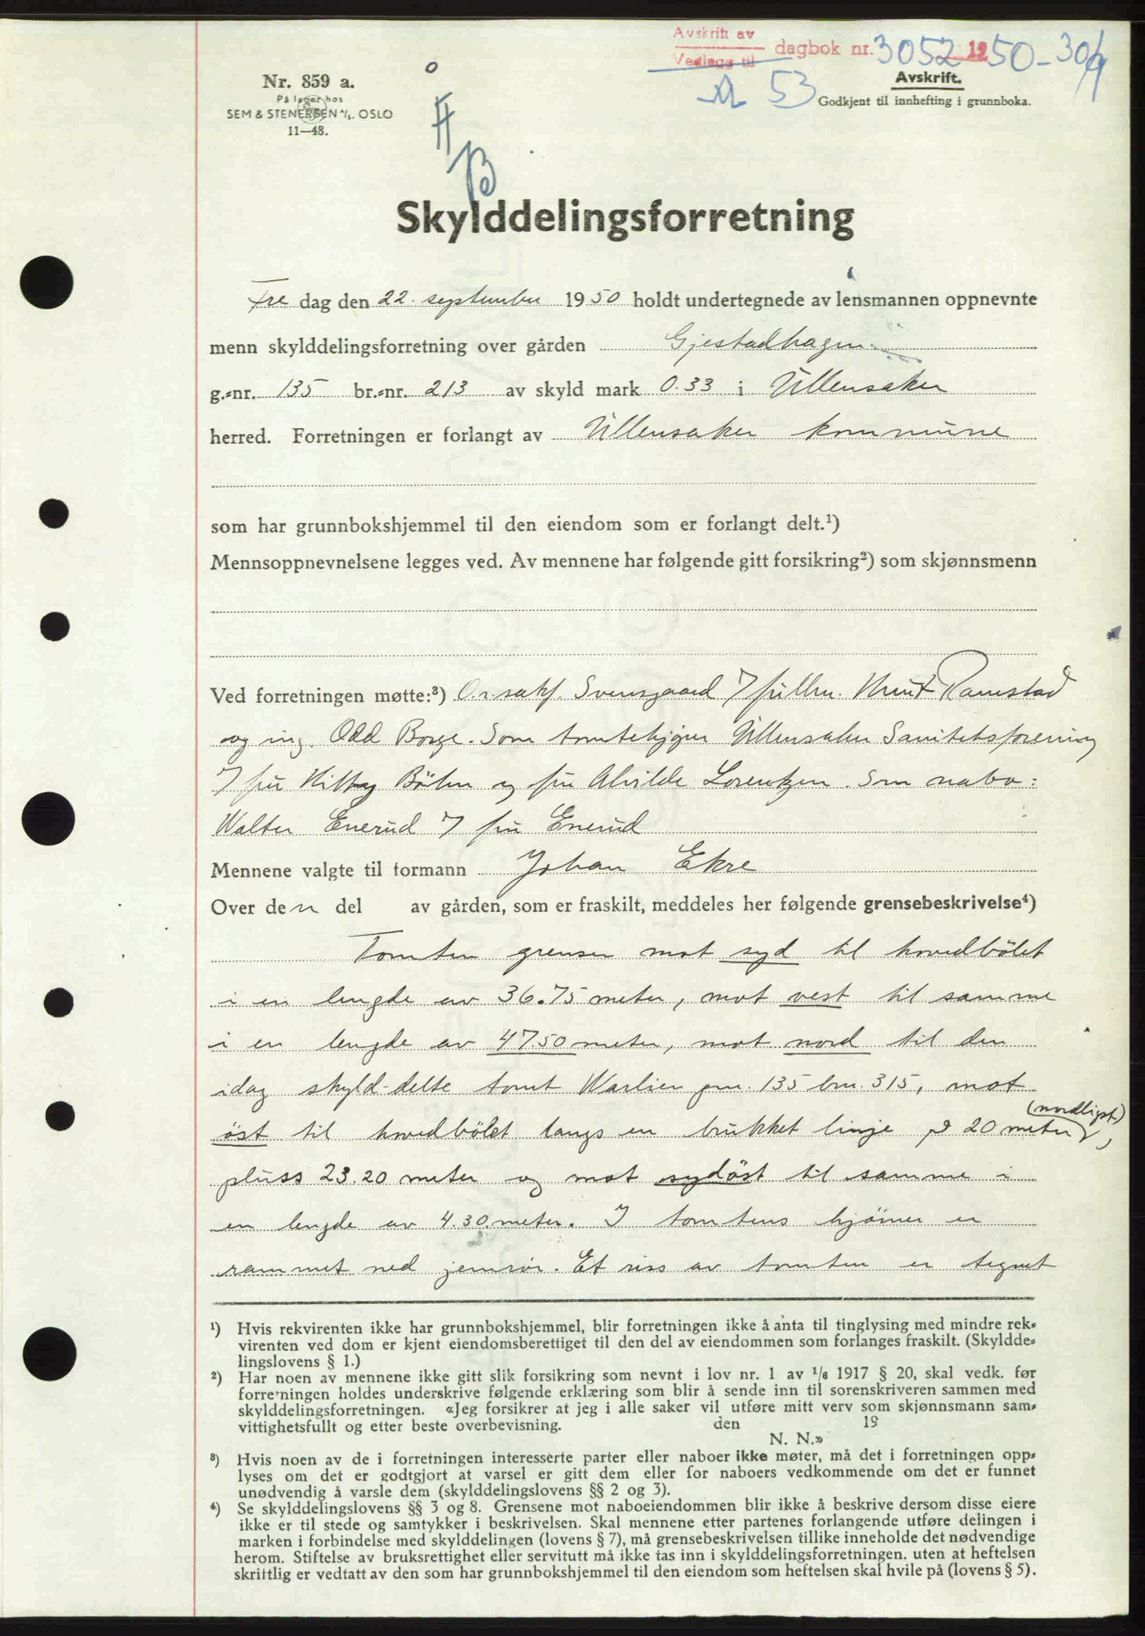 Avskrift av
Vedlegg til dagbok nr. 3052 1950-30/9
53
Avskrift.
Godkjent til innhefting i grunnboka.
Nr. 859 a.
På lager hos
SEM & STENERSEN A/S. OSLO
11—48.
Skylddelingsforretning
Fre dag den 22. september 1950 holdt undertegnede av lensmannen oppnevnte
menn skylddelingsforretning over gården Gjestadhagen
g.=nr. 135 br.=nr. 213 av skyld mark 0.33 i Ullensaker
herred. Forretningen er forlangt av Ullensaker kommune
som har grunnbokshjemmel til den eiendom som er forlangt delt.¹)
Mennsoppnevnelsene legges ved. Av mennene har følgende gitt forsikring²) som skjønnsmenn
Ved forretningen møtte:³) O.r.sakf. Svensgaard v/ frøken Ramstad
og ing. Odd Borge. Som tomtekjøper Ullensaker Sanitetsforening
v/ fru Kitty Bøhn og fru Alvilde Lorentzen. Som nabo:
Walter Enerud v/ fru Enerud
Mennene valgte til formann Johan Ekre
Over den del av gården, som er fraskilt, meddeles her følgende grensebeskrivelse⁴)
Tomten grenser mot syd til hovedbølet
i en lengde av 36.75 meter, mot vest til samme
i en lengde av 47.50 meter, mot nord til den
idag skyld-delte tomt gnr. 135 bnr. 315, mot
øst til hovedbølet langs en brukket linje på 20 meter (nordligst),
pluss 23.20 meter og mot sydøst til samme i
en lengde av 4.30 meter. I tomtens hjørner er
rammet ned jernrør. Et riss av tomten er tegnet
¹) Hvis rekvirenten ikke har grunnbokshjemmel, blir forretningen ikke å anta til tinglysing med mindre rek=
virenten ved dom er kjent eiendomsberettiget til den del av eiendommen som forlanges fraskilt. (Skyldde=
lingslovens § 1.)
²) Har noen av mennene ikke gitt slik forsikring som nevnt i lov nr. 1 av 1/6 1917 § 20, skal vedk. før
forretningen holdes underskrive følgende erklæring som blir å sende inn til sorenskriveren sammen med
skylddelingsforretningen. «Jeg forsikrer at jeg i alle saker vil utføre mitt verv som skjønnsmann sam=
vittighetsfullt og etter beste overbevisning. den 19
N. N.»
³) Hvis noen av de i forretningen interesserte parter eller naboer ikke møter, må det i forretningen opp=
lyses om det er godtgjort at varsel er gitt dem eller for naboers vedkommende om det er funnet
unødvendig å varsle dem (skylddelingslovens §§ 2 og 3).
⁴) Se skylddelingslovens §§ 3 og 8. Grensene mot naboeiendommen blir ikke å beskrive dersom disse eiere
ikke er til stede og samtykker i beskrivelsen. Skal mennene etter partenes forlangende utføre delingen i
marken i forbindelse med skylddelingen (lovens § 7), må grensebeskrivelsen tillike inneholde det nødvendige
herom. Stiftelse av bruksrettighet eller servitutt må ikke tas inn i skylddelingsforretningen. uten at heftelsen
skriftlig er vedtatt av den som har grunnbokshjemmel til den eiendom som heftelsen skal hvile på (lovens § 5).